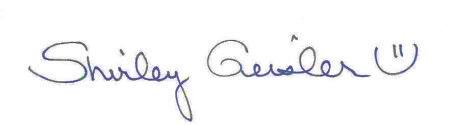 Shirley Geisler